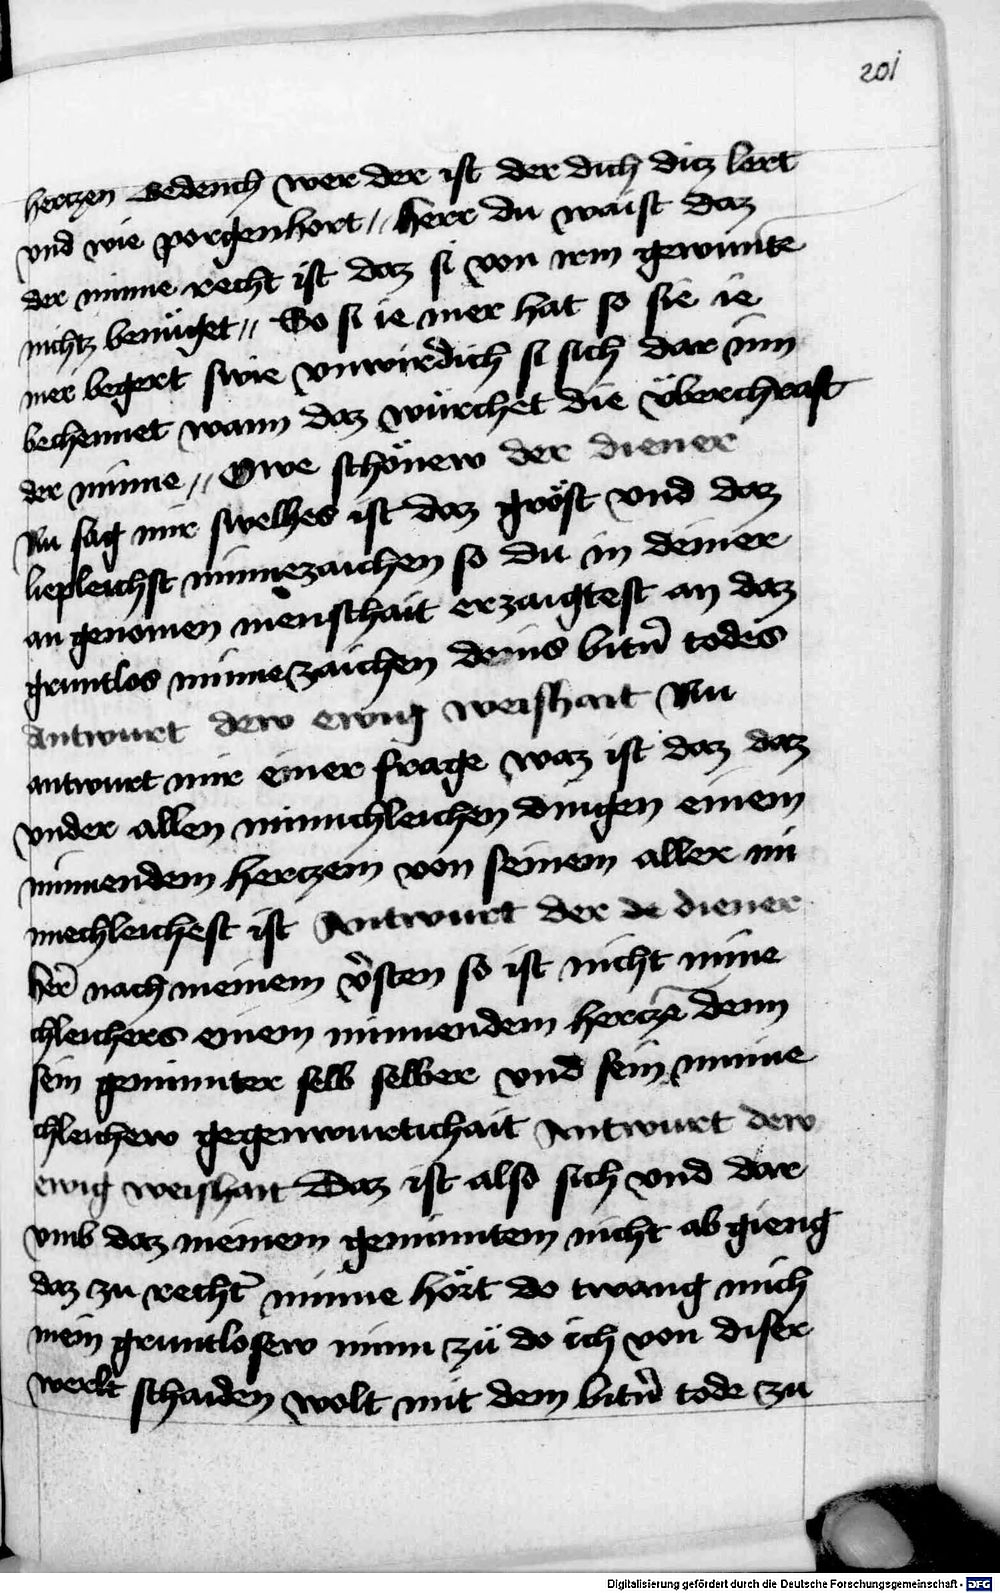 201
hertzen Bedench wer der ist der dich ditz lert
vnd wie porgenhort // herr du waist daz
der minne recht ist daz si von irm geminnte
nichtz benüget // So si ie mer hat so sie ie
mer begert swie vnwirdich si sich dar inn
bechennet wann daz würchet die überchraft
der minne // Owe schönew der diener
Nu sag mir swelhes ist daz gröst vnd daz
liepleichst minnezaichen so du in deiner
an genomen menschait erzaigtest an daz
gruntlos minnezaichen deins bitern̄ todes
Antwurt dew ewig weishait Nu
antwurt mir einer frage waz ist daz daz
vnder allen minnchleichen dingen einem
minnendem hertzein von seinem aller mi
nnechleichest ist Antwurt der de diener
her̄ nach meinem v̓sten so ist nicht minne
chleichers einem minnendem hertzē denn
sein geminnter selb selber vnd sein minne
chleichew gegenwurtichait Antwurt dew
ewig weishait Daz ist also sich vnd dar
vmb daz meinem geminntem nicht ab gieng
daz zu recht̓ minne hört do twang mich
mein gruntlosew minn zü do ich von diser
werlt schaiden wolt mit dem bitn̓ tode zu
Digitalisierung gefördert durch die Deutsche Forschungsgemeinschaft - DFG